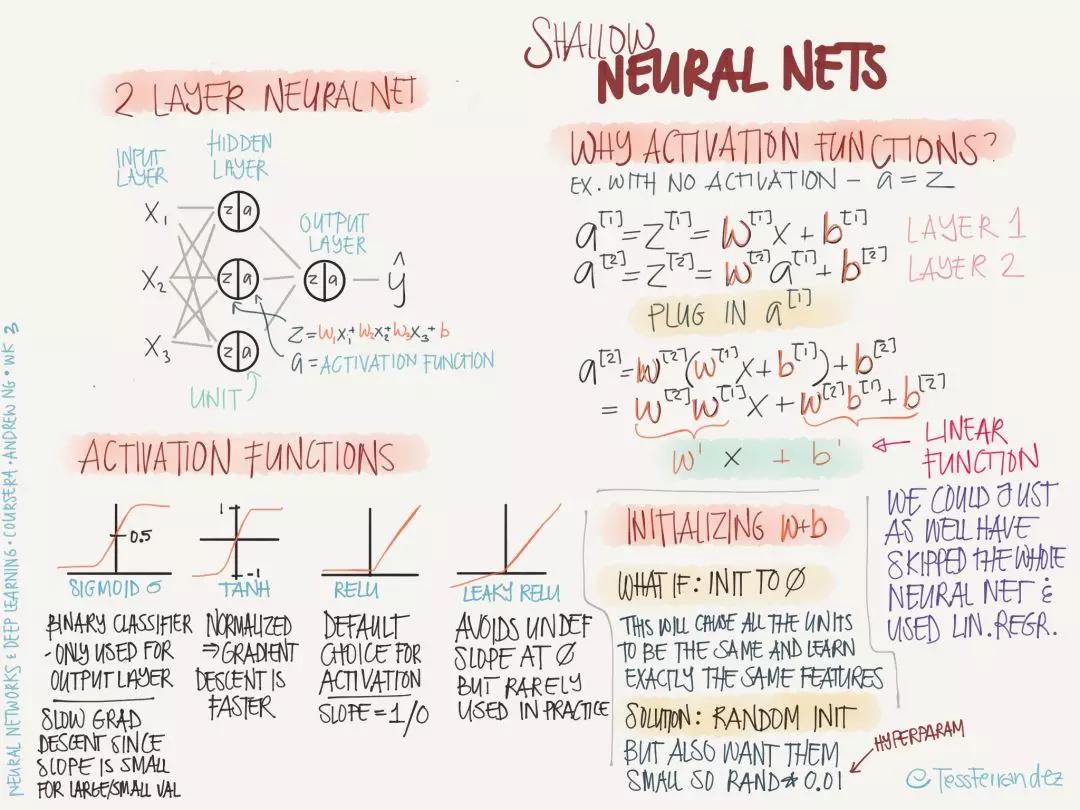 SHALLOW
NEURAL NETS
2 LAYER NEURAL NET
INPUT
LAYER
HIDDEN
LAYER
OUTPUT
LAYER
X₁
X₂
X₃
z|a
z|a
z|a
z|a
ŷ
Z=W₁X₁+W₂X₂+W₃X₃+b
a=ACTIVATION FUNCTION
UNIT
ACTIVATION FUNCTIONS
0.5
SIGMOID σ
BINARY CLASSIFIER
- ONLY USED FOR
OUTPUT LAYER
SLOW GRAD
DESCENT SINCE
SLOPE IS SMALL
FOR LARGE/SMALL VAL
1
-1
TANH
NORMALIZED
⇒ GRADIENT
DESCENT IS
FASTER
RELU
DEFAULT
CHOICE FOR
ACTIVATION
SLOPE = 1/0
LEAKY RELU
AVOIDS UNDEF
SLOPE AT 0
BUT RARELY
USED IN PRACTICE
WHY ACTIVATION FUNCTIONS?
EX. WITH NO ACTIVATION - a = z
a[1]=Z[1]= W[1]X + b[1] LAYER 1
a[2]=Z[2]= W[2]a[1]+ b[2] LAYER 2
PLUG IN a[1]
a[2]=W[2](W[1]X+b[1])+b[2]
= W[2]W[1]X + W[2]b[1]+b[2]
W' X + b'
LINEAR
FUNCTION
WE COULD JUST
AS WELL HAVE
SKIPPED THE WHOLE
NEURAL NET &
USED LIN. REGR.
INITIALIZING W+b
WHAT IF: INIT TO 0
THIS WILL CAUSE ALL THE UNITS
TO BE THE SAME AND LEARN
EXACTLY THE SAME FEATURES
SOLUTION: RANDOM INIT
BUT ALSO WANT THEM
SMALL SO RAND * 0.01
HYPERPARAM
@TessFerrandez
NEURAL NETWORKS & DEEP LEARNING • COURSERA • ANDREW NG • WK 3